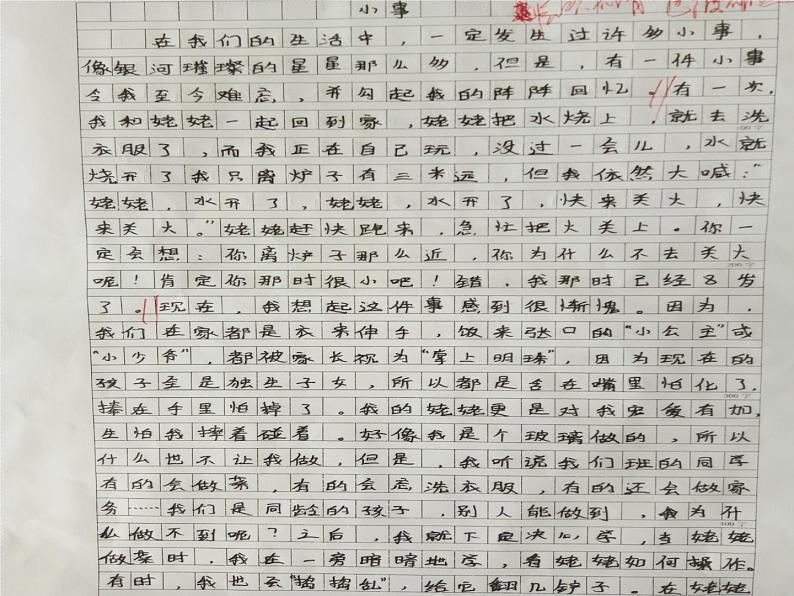 小事
在我们的生活中，一定发生过许多小事，
像银河璀璨的星星那么多，但是，有一件小事
令我至今难忘，并勾起我的阵阵回忆。有一次，
我和姥姥一起回到家，姥姥把水烧上，就去洗
衣服了，而我正在自己玩，没过一会儿，水就
烧开了我只离炉子有三米远，但我依然大喊："
姥姥，水开了，姥姥，水开了，快来关火，快
来关火。"姥姥赶快跑来，急忙把火关上。你一
定会想：你离炉子那么近，你为什么不去关火
呢！肯定你那时很小吧！错，我那时已经8岁
了。现在，我想起这件事感到很惭愧。因为，
我们在家都是衣来伸手，饭来张口的"小公主"或
"小少爷"，都被家长视为"掌上明珠"，因为现在的
孩子全是独生子女，所以都是含在嘴里怕化了，
捧在手里怕掉了。我的姥姥更是对我有如，
生怕我摔着碰着。好像我是个玻璃做的，所以
什么也不让我做，但是，我听说我们班的同学
有的会做菜，有的会洗衣服，有的还会做家
务……我们是同龄的孩子，别人能做到，我为什
么做不到呢？之后，我就下定决心学，当姥姥
做菜时，我在一旁暗暗地学，看姥姥如何操作。
有时，我也会"捣捣乱"，给它翻几铲子。在姥姥
100字
200字
300字
400字